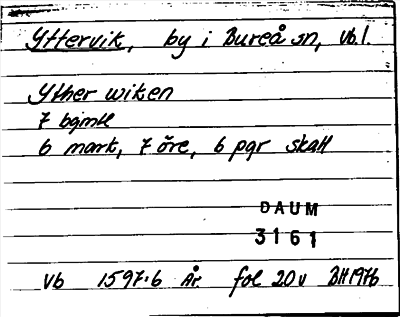 Yttervik, by i Bureå sn, Vb.l.
Yther wiken
7 bgmtl
6 mark, 7 öre, 6 pgr skatt
DAUM
3161
Vb 1597:6 År fol 20v BH 1976